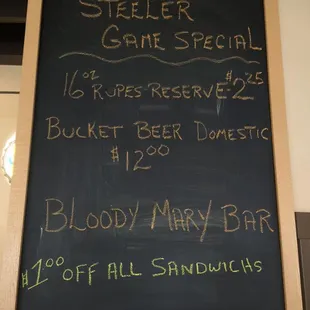 STEELER
GAME SPECIAL
16 OZ RUPES RESERVE $2.25
BUCKET BEER DOMESTIC
$12.00
BLOODY MARY BAR
$1.00 OFF ALL SANDWICHS